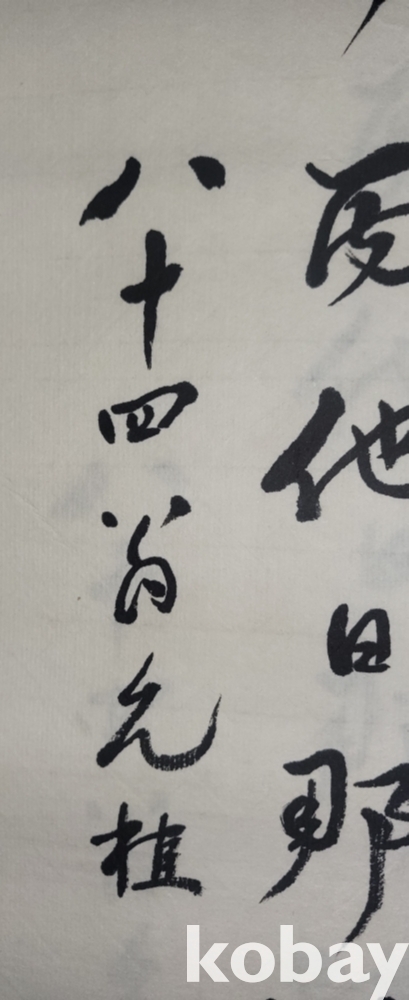 他日那
八十四翁允植
kobay